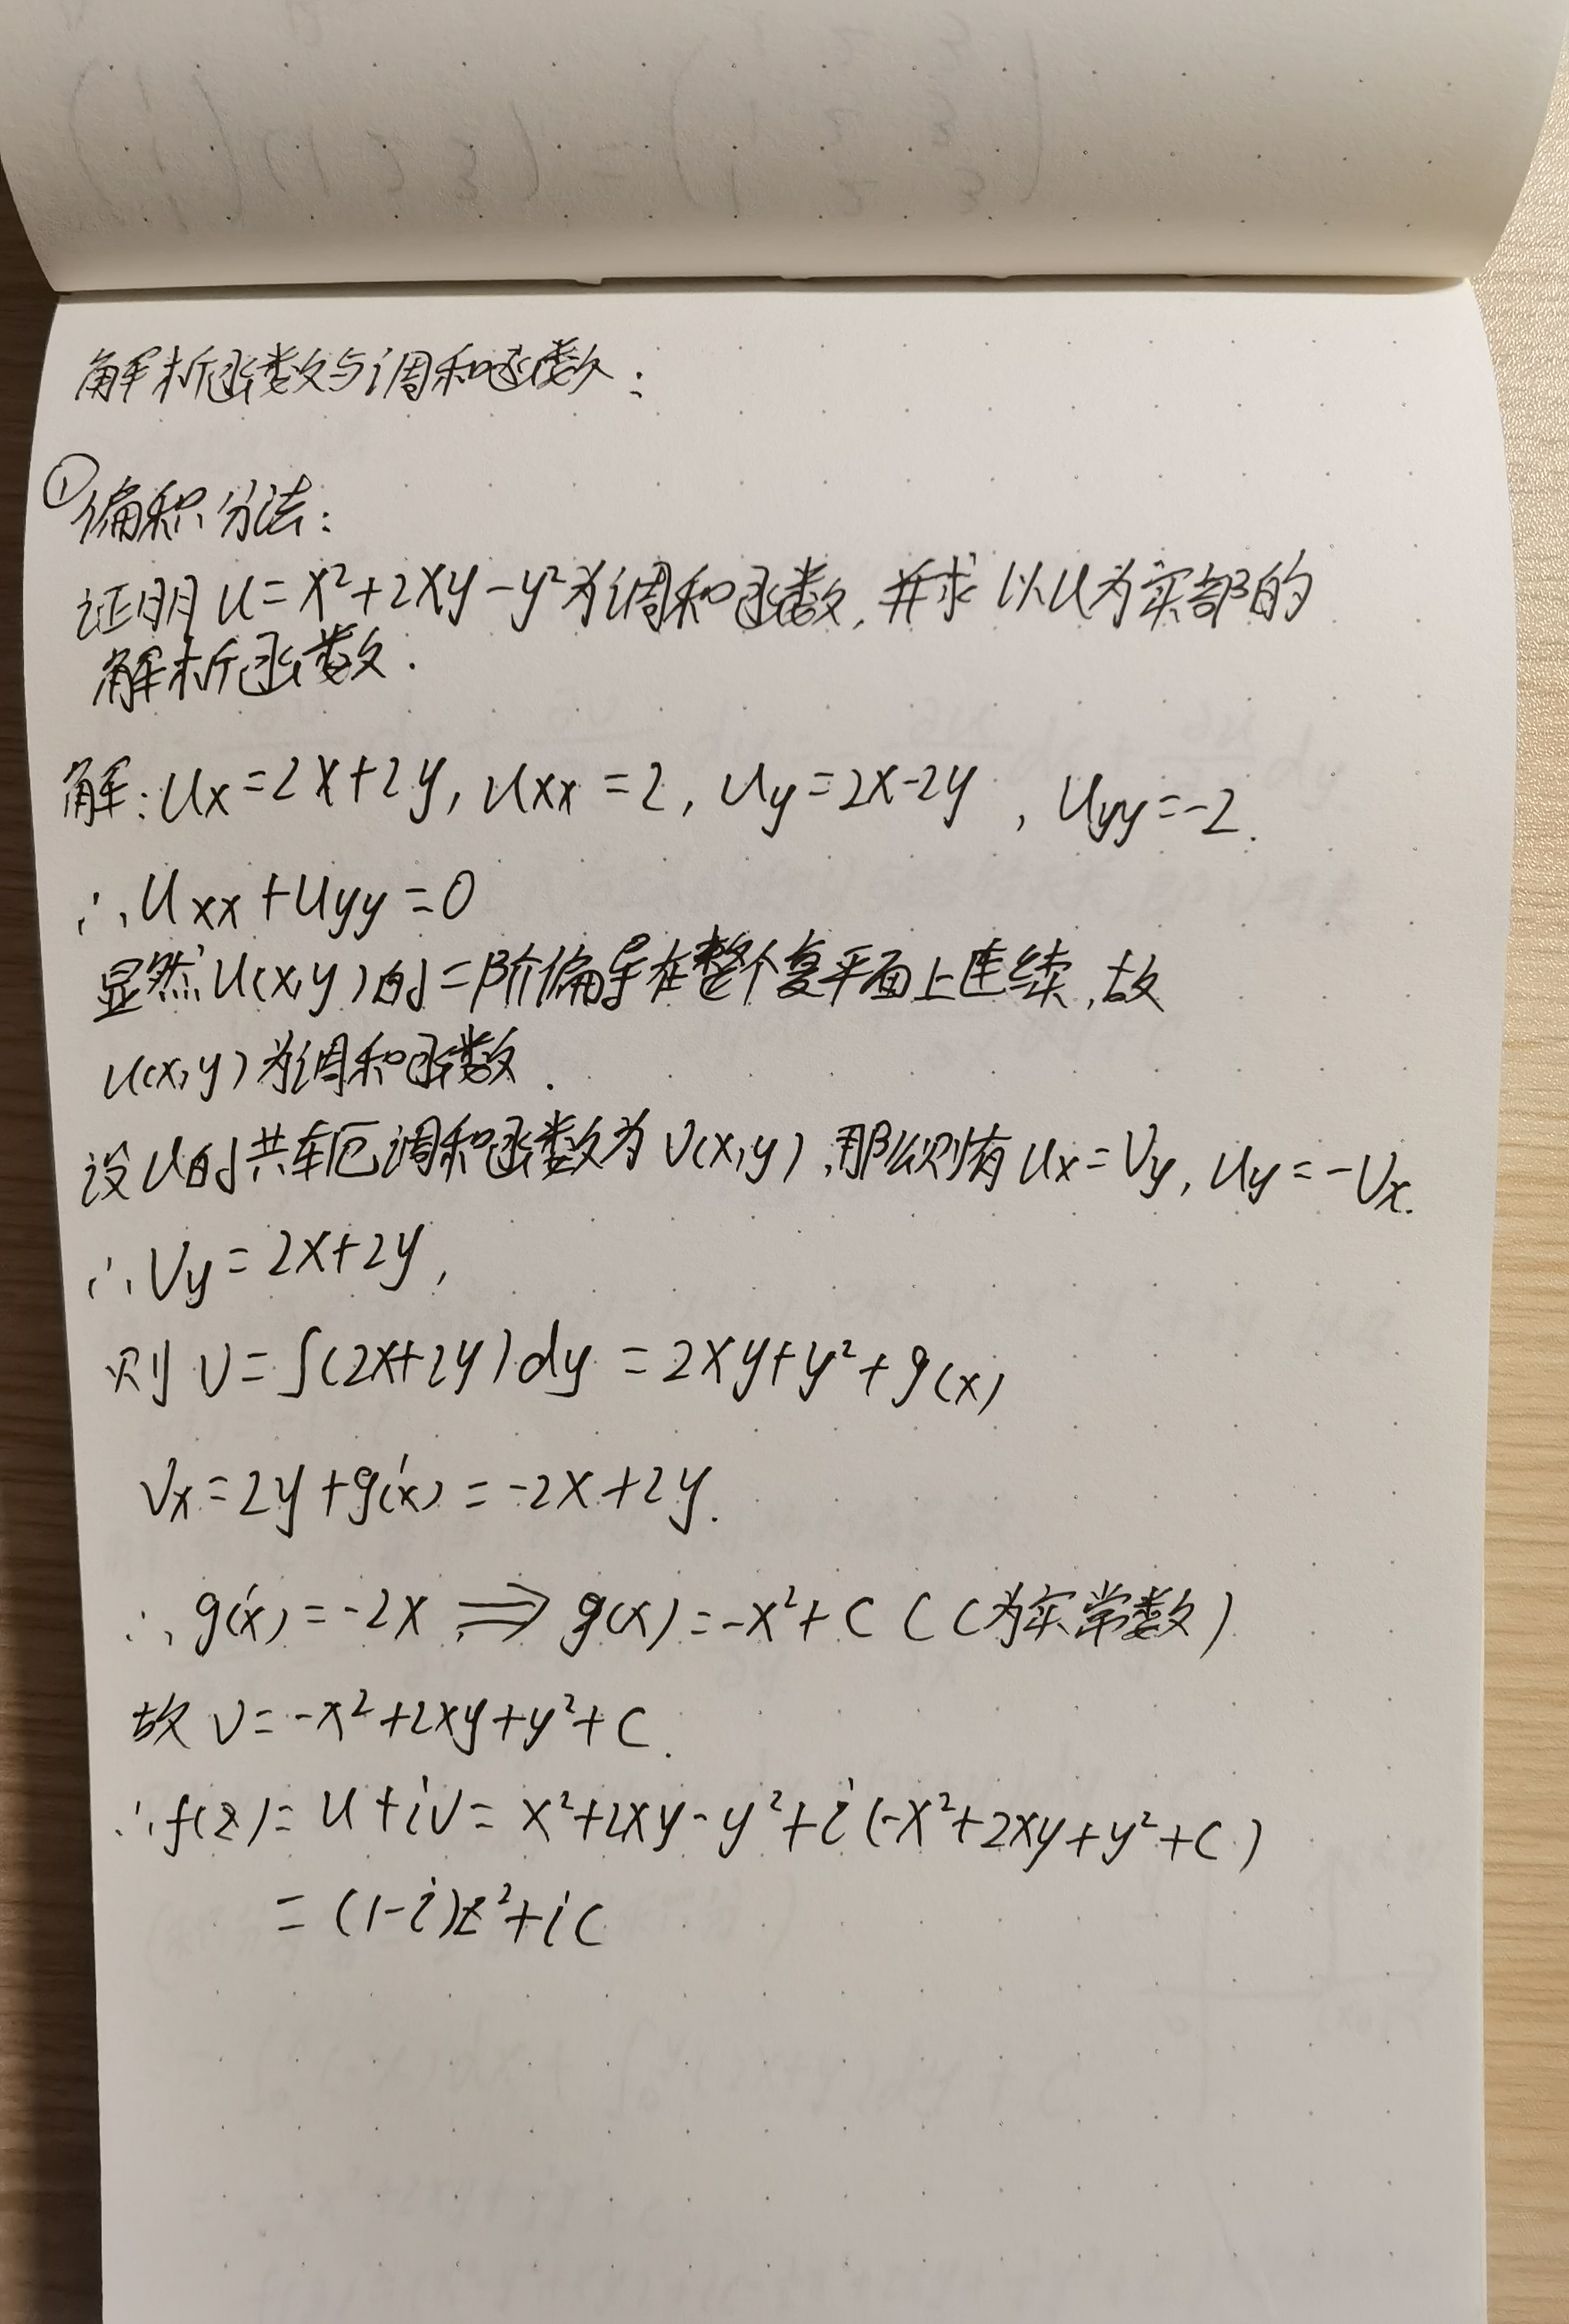 解析函数与调和函数:
①偏积分法:
证明 u=x²+2xy-y²为调和函数,并求以u为实部的
解析函数.
解:ux=2x+2y, uxx=2, uy=2x-2y, uyy=-2.
∴uxx+uyy=0
显然u(x,y)的二阶偏导在整个复平面上连续,故
u(x,y)为调和函数.
设u的共轭调和函数为v(x,y),那么则有ux=vy, uy=-vx.
∴vy=2x+2y,
则 v=∫(2x+2y)dy=2xy+y²+g(x)
vx=2y+g'(x)=-2x+2y.
∴g'(x)=-2x⟹g(x)=-x²+C (C为实常数)
故 v=-x²+2xy+y²+C.
∴f(z)=u+iv=x²+2xy-y²+i(-x²+2xy+y²+C)
=(1-i)z²+iC